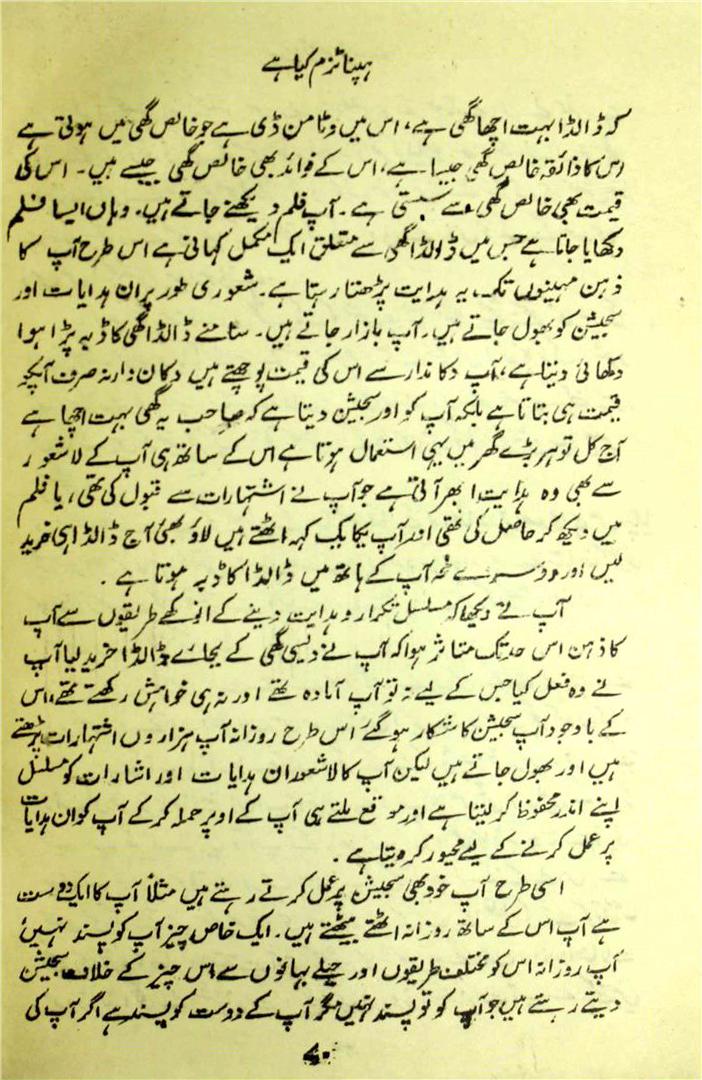 ہپناٹزم کیا ہے
کہ ڈالڈا بہت اچھا گھی ہے، اس میں وٹامن ڈی ہے جو خالص گھی میں ہوتی ہے
اس کا ذائقہ خالص گھی جیسا ہے، اس کے فوائد بھی خالص گھی جیسے ہیں۔ اس کی
قیمت بھی خالص گھی سے سستی ہے۔ آپ فلم دیکھنے جاتے ہیں۔ وہاں ایسا فلم
دکھایا جاتا ہے جس میں ڈالڈا گھی سے متعلق ایک مکمل کہانی ہے اس طرح آپ کا
ذہن مہینوں تک یہ ہدایت پڑھتا رہتا ہے۔ شعوری طور پر ان ہدایات اور
سجیشن کو بھول جاتے ہیں۔ آپ بازار جاتے ہیں۔ سامنے ڈالڈا گھی کا ڈبہ پڑا ہوا
دکھائی دیتا ہے، آپ دکاندار سے اس کی قیمت پوچھتے ہیں دکان دار نہ صرف آپکو
قیمت ہی بتاتا ہے بلکہ آپ کو اور سجیشن دیتا ہے کہ صاحب یہ گھی بہت اچھا ہے
آج کل تو ہر بڑے گھر میں یہی استعمال ہوتا ہے اس کے ساتھ ہی آپ کے لاشعور
سے بھی وہ ہدایت ابھر آتی ہے جو آپ نے اشتہارات سے قبول کی تھی، یا فلم
میں دیکھ کر حاصل کی تھی اور آپ یکایک کہہ اٹھتے ہیں لاؤ بھئی آج ڈالڈا ہی خرید
لیں اور دوسرے لمحہ آپ کے ہاتھ میں ڈالڈا کا ڈبہ ہوتا ہے۔
آپ نے دیکھا کہ مسلسل تکرار و ہدایت دینے کے انوکھے طریقوں سے آپ
کا ذہن اس حد تک متاثر ہوا کہ آپ نے دیسی گھی کے بجائے ڈالڈا خرید لیا آپ
نے وہ فعل کیا جس کے لیے نہ تو آپ آمادہ تھے اور نہ ہی خواہش رکھتے تھے، اس
کے باوجود آپ سجیشن کا شکار ہو گئے اس طرح روزانہ آپ ہزاروں اشتہارات پڑھتے
ہیں اور بھول جاتے ہیں لیکن آپ کا لاشعور ان ہدایات اور اشارات کو مسلسل
اپنے اندر محفوظ کر لیتا ہے اور موقع ملتے ہی آپ کے اوپر حملہ کر کے آپ کو ان ہدایات
پر عمل کرنے کے لیے مجبور کر دیتا ہے۔
اسی طرح آپ خود بھی سجیشن پر عمل کرتے رہتے ہیں مثلاً آپ کا ایک دوست
ہے آپ اس کے ساتھ روزانہ اٹھتے بیٹھتے ہیں۔ ایک خاص چیز آپ کو پسند نہیں
آپ روزانہ اس کو مختلف طریقوں اور حیلے بہانوں سے اس چیز کے خلاف سجیشن
دیتے رہتے ہیں جو آپ کو تو پسند نہیں مگر آپ کے دوست کو پسند ہے اگر آپ کی